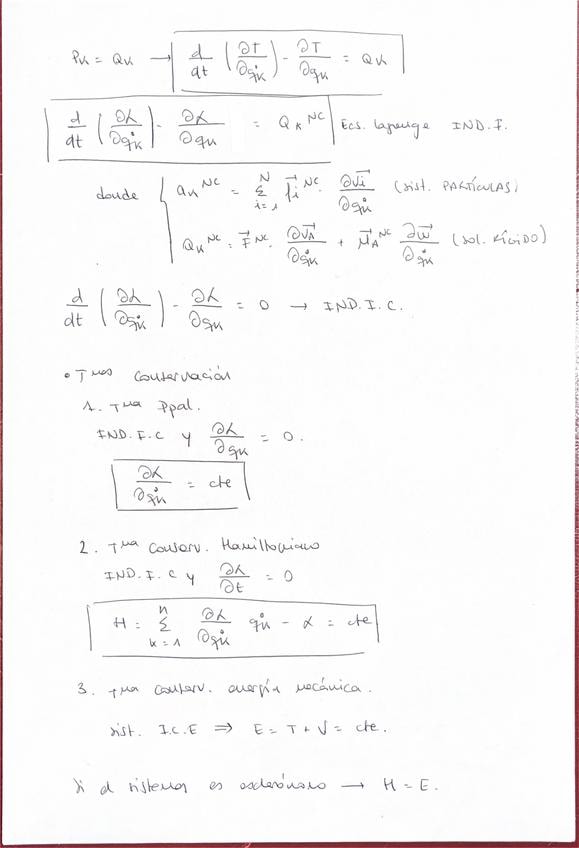 Pk = Qk → d/dt (∂T/∂q̇k) - ∂T/∂qk = Qk
d/dt (∂L/∂q̇k) - ∂L/∂qk = Qk^NC Ecs. Lagrange IND. F.
donde { Qk^NC = Σ_{i=1}^{N} f⃗i^NC · ∂v⃗i/∂q̇k (sist. PARTÍCULAS)
Qk^NC = F⃗^NC · ∂v⃗A/∂q̇k + M⃗A^NC ∂ω⃗/∂q̇k (sol. RÍGIDO)
d/dt (∂L/∂q̇k) - ∂L/∂qk = 0 → IND. I. C.
• Tmas Conservación
1. Tma Ppal.
IND. I. C y ∂L/∂qk = 0.
∂L/∂q̇k = cte
2. Tma Conserv. Hamiltoniano
IND. I. C y ∂L/∂t = 0
H = Σ_{k=1}^{n} ∂L/∂q̇k q̇k - L = cte
3. Tma conserv. energía mecánica.
sist. I.C.E ⇒ E = T + V = cte.
Si el sistema es esclerónomo → H = E.